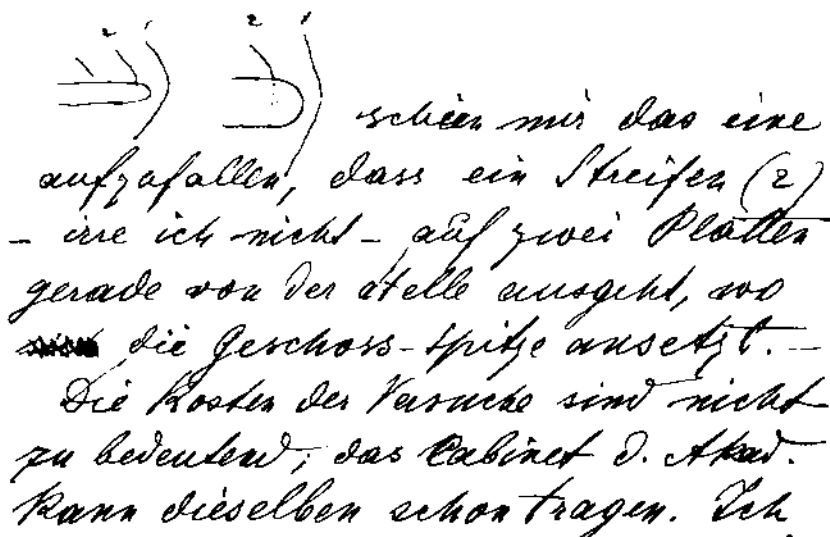 2 1 2 1
schien mir das eine
aufzufallen, dass ein Streifen (2)
- irre ich nicht - auf zwei Platten
gerade von der Stelle ausgeht, wo
die Geschoss-Spitze ansetzt. -
Die Kosten der Versuche sind nicht
zu bedeutend; das Cabinet d. Akad.
kann dieselben schon tragen. Ich